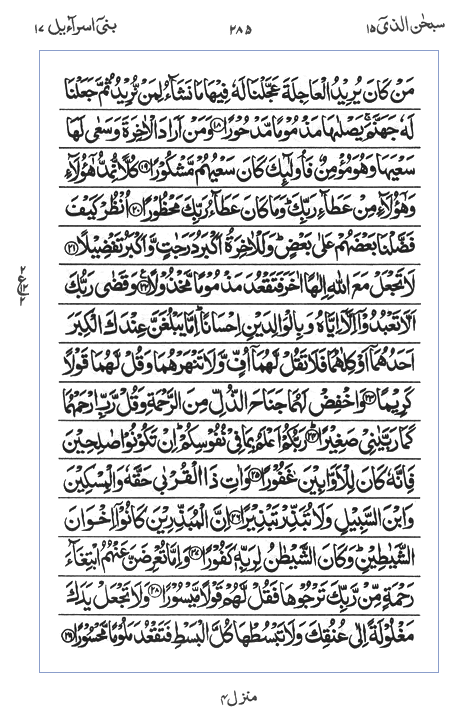 سبحٰن الذی ١٥ ٢٨٥ بنی اسرآءیل ١٧
مَنْ كَانَ يُرِيْدُ الْعَاجِلَةَ عَجَّلْنَا لَهٗ فِيْهَا مَا نَشَآءُ لِمَنْ نُّرِيْدُ ثُمَّ جَعَلْنَا
لَهٗ جَهَنَّمَ ۚ يَصْلٰىهَا مَذْمُوْمًا مَّدْحُوْرًا ﴿١٨﴾ وَمَنْ اَرَادَ الْاٰخِرَةَ وَسَعٰى لَهَا
سَعْيَهَا وَهُوَ مُؤْمِنٌ فَاُولٰٓئِكَ كَانَ سَعْيُهُمْ مَّشْكُوْرًا ﴿١٩﴾ كُلًّا نُّمِدُّ هٰٓؤُلَآءِ
وَهٰٓؤُلَآءِ مِنْ عَطَآءِ رَبِّكَ ؕ وَمَا كَانَ عَطَآءُ رَبِّكَ مَحْظُوْرًا ﴿٢٠﴾ اُنْظُرْ كَيْفَ
فَضَّلْنَا بَعْضَهُمْ عَلٰى بَعْضٍ ؕ وَلَلْاٰخِرَةُ اَكْبَرُ دَرَجٰتٍ وَّاَكْبَرُ تَفْضِيْلًا ﴿٢١﴾
لَا تَجْعَلْ مَعَ اللّٰهِ اِلٰهًا اٰخَرَ فَتَقْعُدَ مَذْمُوْمًا مَّخْذُوْلًا ﴿٢٢﴾ وَقَضٰى رَبُّكَ
٢ ع ١٢ ٢
اَلَّا تَعْبُدُوْٓا اِلَّآ اِيَّاهُ وَبِالْوَالِدَيْنِ اِحْسَانًا ؕ اِمَّا يَبْلُغَنَّ عِنْدَكَ الْكِبَرَ
اَحَدُهُمَآ اَوْ كِلٰهُمَا فَلَا تَقُلْ لَّهُمَآ اُفٍّ وَّلَا تَنْهَرْهُمَا وَقُلْ لَّهُمَا قَوْلًا
كَرِيْمًا ﴿٢٣﴾ وَاخْفِضْ لَهُمَا جَنَاحَ الذُّلِّ مِنَ الرَّحْمَةِ وَقُلْ رَّبِّ ارْحَمْهُمَا
كَمَا رَبَّيٰنِيْ صَغِيْرًا ﴿٢٤﴾ رَبُّكُمْ اَعْلَمُ بِمَا فِيْ نُفُوْسِكُمْ ؕ اِنْ تَكُوْنُوْا صٰلِحِيْنَ
فَاِنَّهٗ كَانَ لِلْاَوَّابِيْنَ غَفُوْرًا ﴿٢٥﴾ وَاٰتِ ذَا الْقُرْبٰى حَقَّهٗ وَالْمِسْكِيْنَ
وَابْنَ السَّبِيْلِ وَلَا تُبَذِّرْ تَبْذِيْرًا ﴿٢٦﴾ اِنَّ الْمُبَذِّرِيْنَ كَانُوْٓا اِخْوَانَ
الشَّيٰطِيْنِ ؕ وَكَانَ الشَّيْطٰنُ لِرَبِّهٖ كَفُوْرًا ﴿٢٧﴾ وَاِمَّا تُعْرِضَنَّ عَنْهُمُ ابْتِغَآءَ
رَحْمَةٍ مِّنْ رَّبِّكَ تَرْجُوْهَا فَقُلْ لَّهُمْ قَوْلًا مَّيْسُوْرًا ﴿٢٨﴾ وَلَا تَجْعَلْ يَدَكَ
مَغْلُوْلَةً اِلٰى عُنُقِكَ وَلَا تَبْسُطْهَا كُلَّ الْبَسْطِ فَتَقْعُدَ مَلُوْمًا مَّحْسُوْرًا ﴿٢٩﴾
منزل ٤